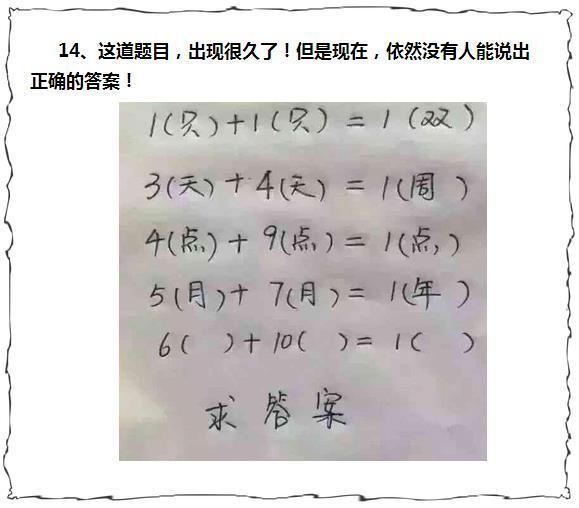 14、这道题目，出现很久了！但是现在，依然没有人能说出
正确的答案！
1(只)+1(只)=1(双)
3(天)+4(天)=1(周)
4(点)+9(点)=1(点)
5(月)+7(月)=1(年)
6( )+10( )=1( )
求答案